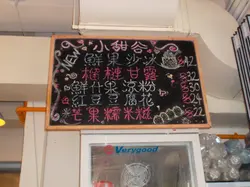 小甜谷
NEW
鮮果沙冰 $42
楊枝甘露 $32
鮮什果涼粉 $30
紅豆豆腐花 $24
芒果糯米糍 $22
Verygood